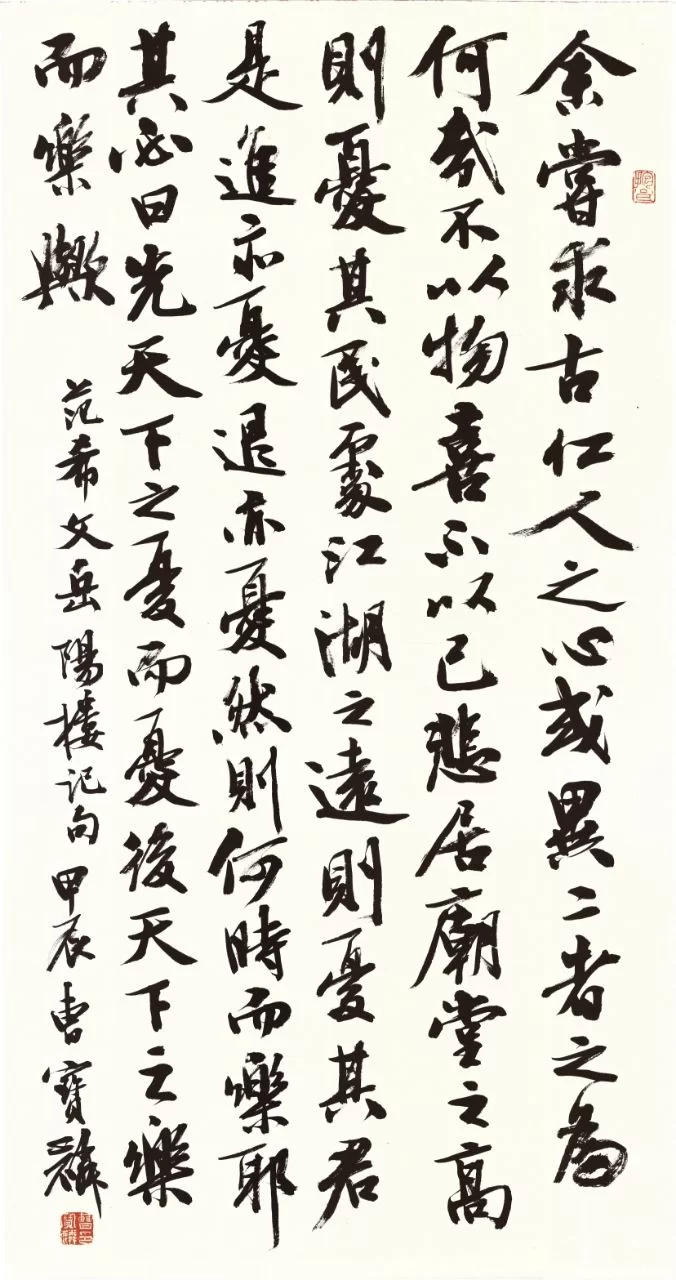 余嘗求古仁人之心或異二者之為
何哉不以物喜不以己悲居廟堂之高
則憂其民處江湖之遠則憂其君
是進亦憂退亦憂然則何時而樂耶
其必曰先天下之憂而憂後天下之樂
而樂歟
范希文岳陽樓記句甲辰曹寶麟